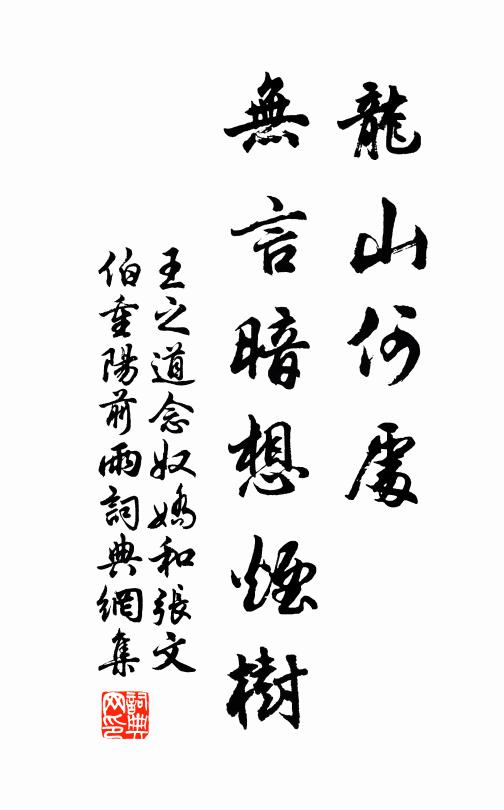 龍山何處
無言暗想煙樹
王之道念奴嬌和張文
伯重陽前雨詞典網集
詞典
网印